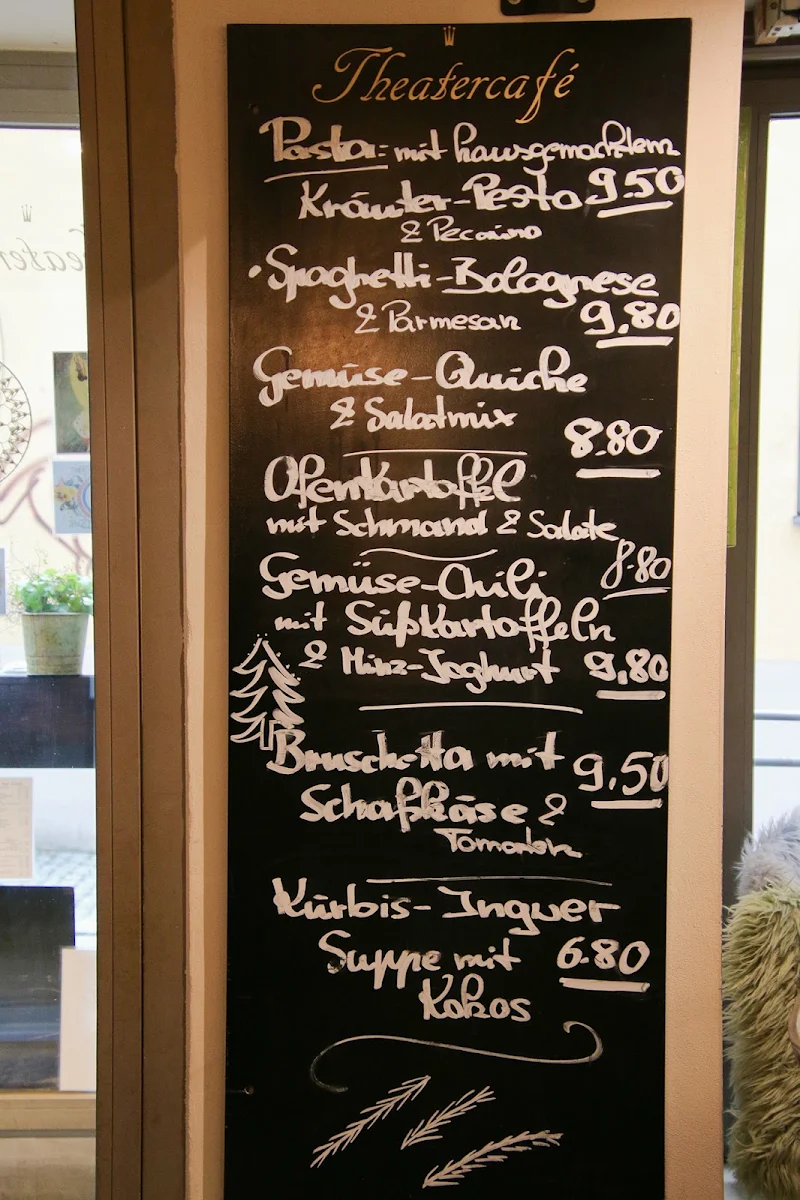 Theatercafé
Pasta: mit hausgemachtem
Kräuter-Pesto 9.50
& Pecorino
• Spaghetti-Bolognese
& Parmesan 9.80
Gemüse-Quiche
& Salatmix
8.80
Ofenkartoffel
mit Schmand & Salate
8.80
Gemüse-Chili
mit Süßkartoffeln
& Minz-Joghurt 9.80
Bruschetta mit 9.50
Schafkäse &
Tomaten
Kürbis-Ingwer
Suppe mit 6.80
Kokos